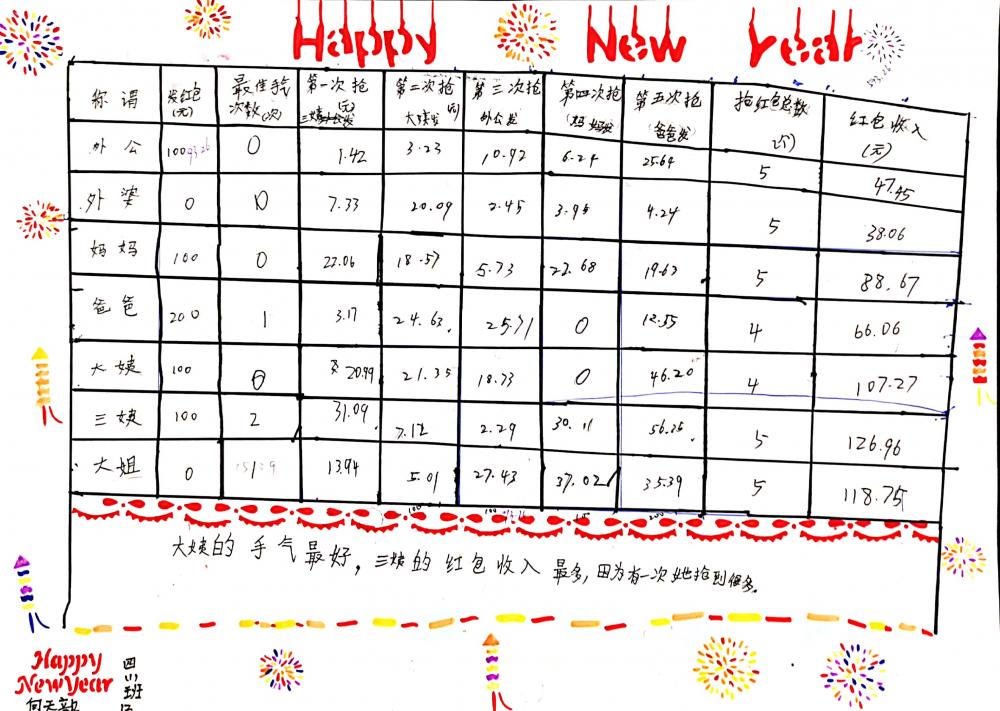 Happy New Year
称谓 发红包(元) 最佳手气次数(次) 第一次抢(元) 三姨发 第二次抢(元) 大姨发 第三次抢 外公发 第四次抢 (妈妈发) 第五次抢 (爸爸发) 抢红包总数(个) 红包收入(元)
外公 100 93.26 0 1.42 3.23 10.92 6.24 25.64 5 47.45
外婆 0 0 7.33 20.09 2.45 3.95 4.24 5 38.06
妈妈 100 0 22.06 18.57 5.73 22.68 19.63 5 88.67
爸爸 200 1 3.17 24.63 25.71 0 12.55 4 66.06
大姨 100 0 20.99 21.35 18.73 0 46.20 4 107.27
三姨 100 2 31.09 7.12 2.29 30.11 56.35 5 126.96
大姐 0 13.94 5.01 27.43 37.02 35.39 5 118.75
大姨的手气最好,三姨的红包收入最多,因为有一次她抢到很多。
Happy
New Year
四川班